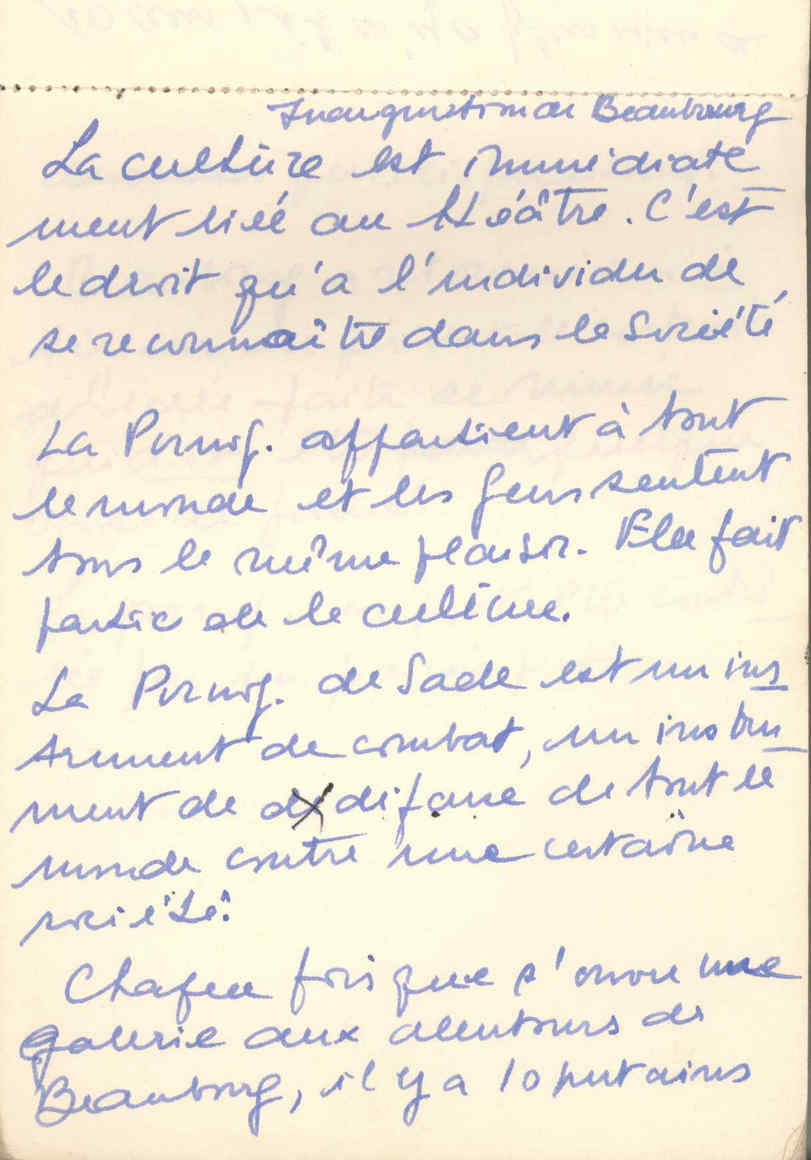 Inauguration de Beaubourg
La culture est immédiate
ment liée au théâtre. C'est
le droit qu'a l'individu de
se reconnaître dans la Société
La Pornog. appartient à tout
le monde et les gens sentent
tous le même plaisir. Elle fait
partie de la culture.
La Pornog. de Sade est un ins
trument de combat, un instru
ment de défense de tout le
monde contre une certaine
société.
Chaque fois que s'ouvre une
galerie aux alentours de
Beaubourg, il y a 10 putains